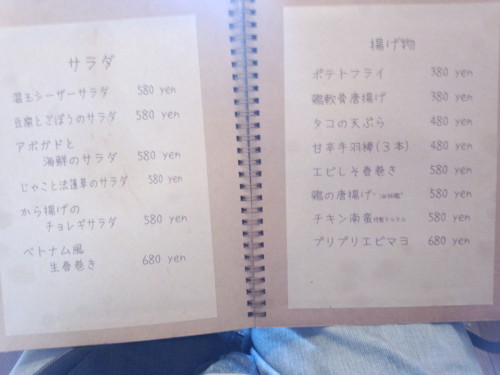 サラダ
温玉シーザーサラダ 580 yen
豆腐とごぼうのサラダ 580 yen
アボガドと
海鮮のサラダ 580 yen
じゃこと法蓮草のサラダ 580 yen
から揚げの
チョレギサラダ 580 yen
ベトナム風
生春巻き 680 yen
揚げ物
ポテトフライ 380 yen
鶏軟骨唐揚げ 380 yen
タコの天ぷら 480 yen
甘辛手羽棒(3本) 480 yen
エビしそ春巻き 580 yen
鶏の唐揚げ 580 yen
チキン南蛮 580 yen
プリプリエビマヨ 680 yen